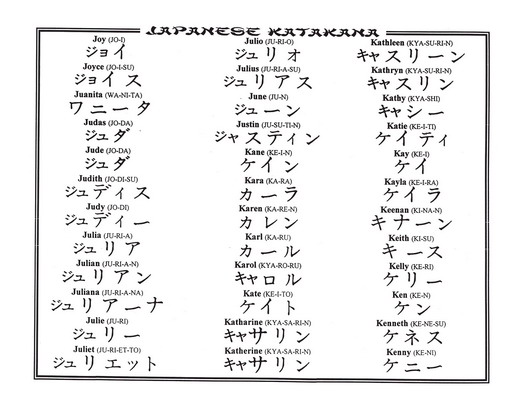 JAPANESE KATAKANA
Joy (JO-I)
ジョイ
Joyce (JO-I-SU)
ジョイス
Juanita (WA-NI-TA)
ワニータ
Judas (JO-DA)
ジュダ
Jude (JO-DA)
ジュダ
Judith (JO-DI-SU)
ジュディス
Judy (JO-DI)
ジュディー
Julia (JU-RI-A)
ジュリア
Julian (JU-RI-A-N)
ジュリアン
Juliana (JU-RI-A-NA)
ジュリアーナ
Julie (JU-RI)
ジュリー
Juliet (JU-RI-ET-TO)
ジュリエット
Julio (JU-RI-O)
ジュリオ
Julius (JU-RI-A-SU)
ジュリアス
June (JU-N)
ジューン
Justin (JU-SU-TI-N)
ジャスティン
Kane (KE-I-N)
ケイン
Kara (KA-RA)
カーラ
Karen (KA-RE-N)
カレン
Karl (KA-RU)
カール
Karol (KYA-RO-RU)
キャロル
Kate (KE-I-TO)
ケイト
Katharine (KYA-SA-RI-N)
キャサリン
Katherine (KYA-SA-RI-N)
キャサリン
Kathleen (KYA-SU-RI-N)
キャスリーン
Kathryn (KYA-SU-RI-N)
キャスリン
Kathy (KYA-SHI)
キャシー
Katie (KE-I-TI)
ケイティ
Kay (KE-I)
ケイ
Kayla (KE-I-RA)
ケイラ
Keenan (KI-NA-N)
キナーン
Keith (KI-SU)
キース
Kelly (KE-RI)
ケリー
Ken (KE-N)
ケン
Kenneth (KE-NE-SU)
ケネス
Kenny (KE-NI)
ケニー